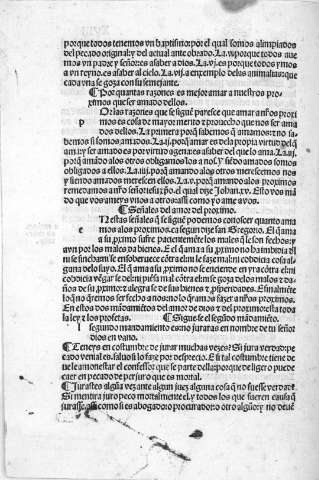 porque todos tenemos vn baptismo: por el qual somos alimpiados
del pecado original: y del actual ante obrado. La .v. porque todos aue
mos vn padre y señor: es a saber dios. La .vj. es porque todos ymos
a vn reyno. es a saber al cielo. La .vij. a enxemplo delas animalias: que
cada vna se goza con su semejante.
¶ Por quantas razones es mejor amar a nuestros pro
ximos que ser amado dellos.
p Or las razones que se siguẽ paresce que amar a nr̃os proxi
mos es cosa de mayor merito y prouecho que no ser ama
dos dellos. La primera porq̃ sabemos q̃ amamos: z no sa-
bemos si somos amados. La .ij. porq̃ amar es dela propia virtud del q̃
ama: y ser amado es por virtud agena: z es saber del que lo ama. La .iij.
porq̃ amãdo alos otros obligamos los a nos. y siẽdo amados somos
obligados a ellos. La .iiij. porq̃ amãdo alos otros merescemos nos
y siendo amados merescen ellos. La .v. porq̃ amando alos proximos
remedamos a nr̃o señor jesu xp̃o. el qual dize Johan .xv. Esto vos mã
do que vos ameys vnos a otros: assi como yo ame a vos.
¶ Señales del amor del proximo.
e Nestas señales q̃ se siguẽ podemos conoscer quanto ama
mos alos proximos. ca segun dize san Gregorio. El q̃ ama
a su proximo sufre pacientemẽte los males q̃ le son fechos: y
avn por los males da bienes. El q̃ ama a su proximo no ha imbidia dl
ni se fincha ni se ensoberuece cõtra el: ni le faze mal: ni cobdicia cosa al
guna delo suyo. El q̃ ama a su proximo no se enciende en yra cõtra el: ni
cobdicia vẽgar se del: ni piẽsa mal cõtra el: ni se goza delos males o da-
ños de su proximo: z alegra se de sus bienes y prosperidades. E finalmẽte
lo q̃ no q̃rremos ser fecho a nos: no lo q̃rramos fazer a nr̃os proximos.
En estos dos mãdamiẽtos del amor de dios z del proximo: esta toda
la ley z los profetas. ¶ Siguese el segũdo mãdamiẽto.
l segundo mandamiento es no juraras en nombre de tu señor
dios en vano.
¶ Teneys en costumbre de jurar muchas vezes? Si jura verdad: pe
cado venial es. saluo si lo faze por desprecio. E si tal costumbre tiene de
ue le amonestar el confessor que se parte della: porque de ligero puede
caer en pecado de perjuro que es mortal.
¶ Jurastes algũa vez ante algun juez alguna cosa q̃ no fuesse verdad?
Si mentira juro peco mortalmente. el y todos los que fueren causa q̃
jurasse. assi como si es abogado: procurador: o otro alguno: y no deuẽ